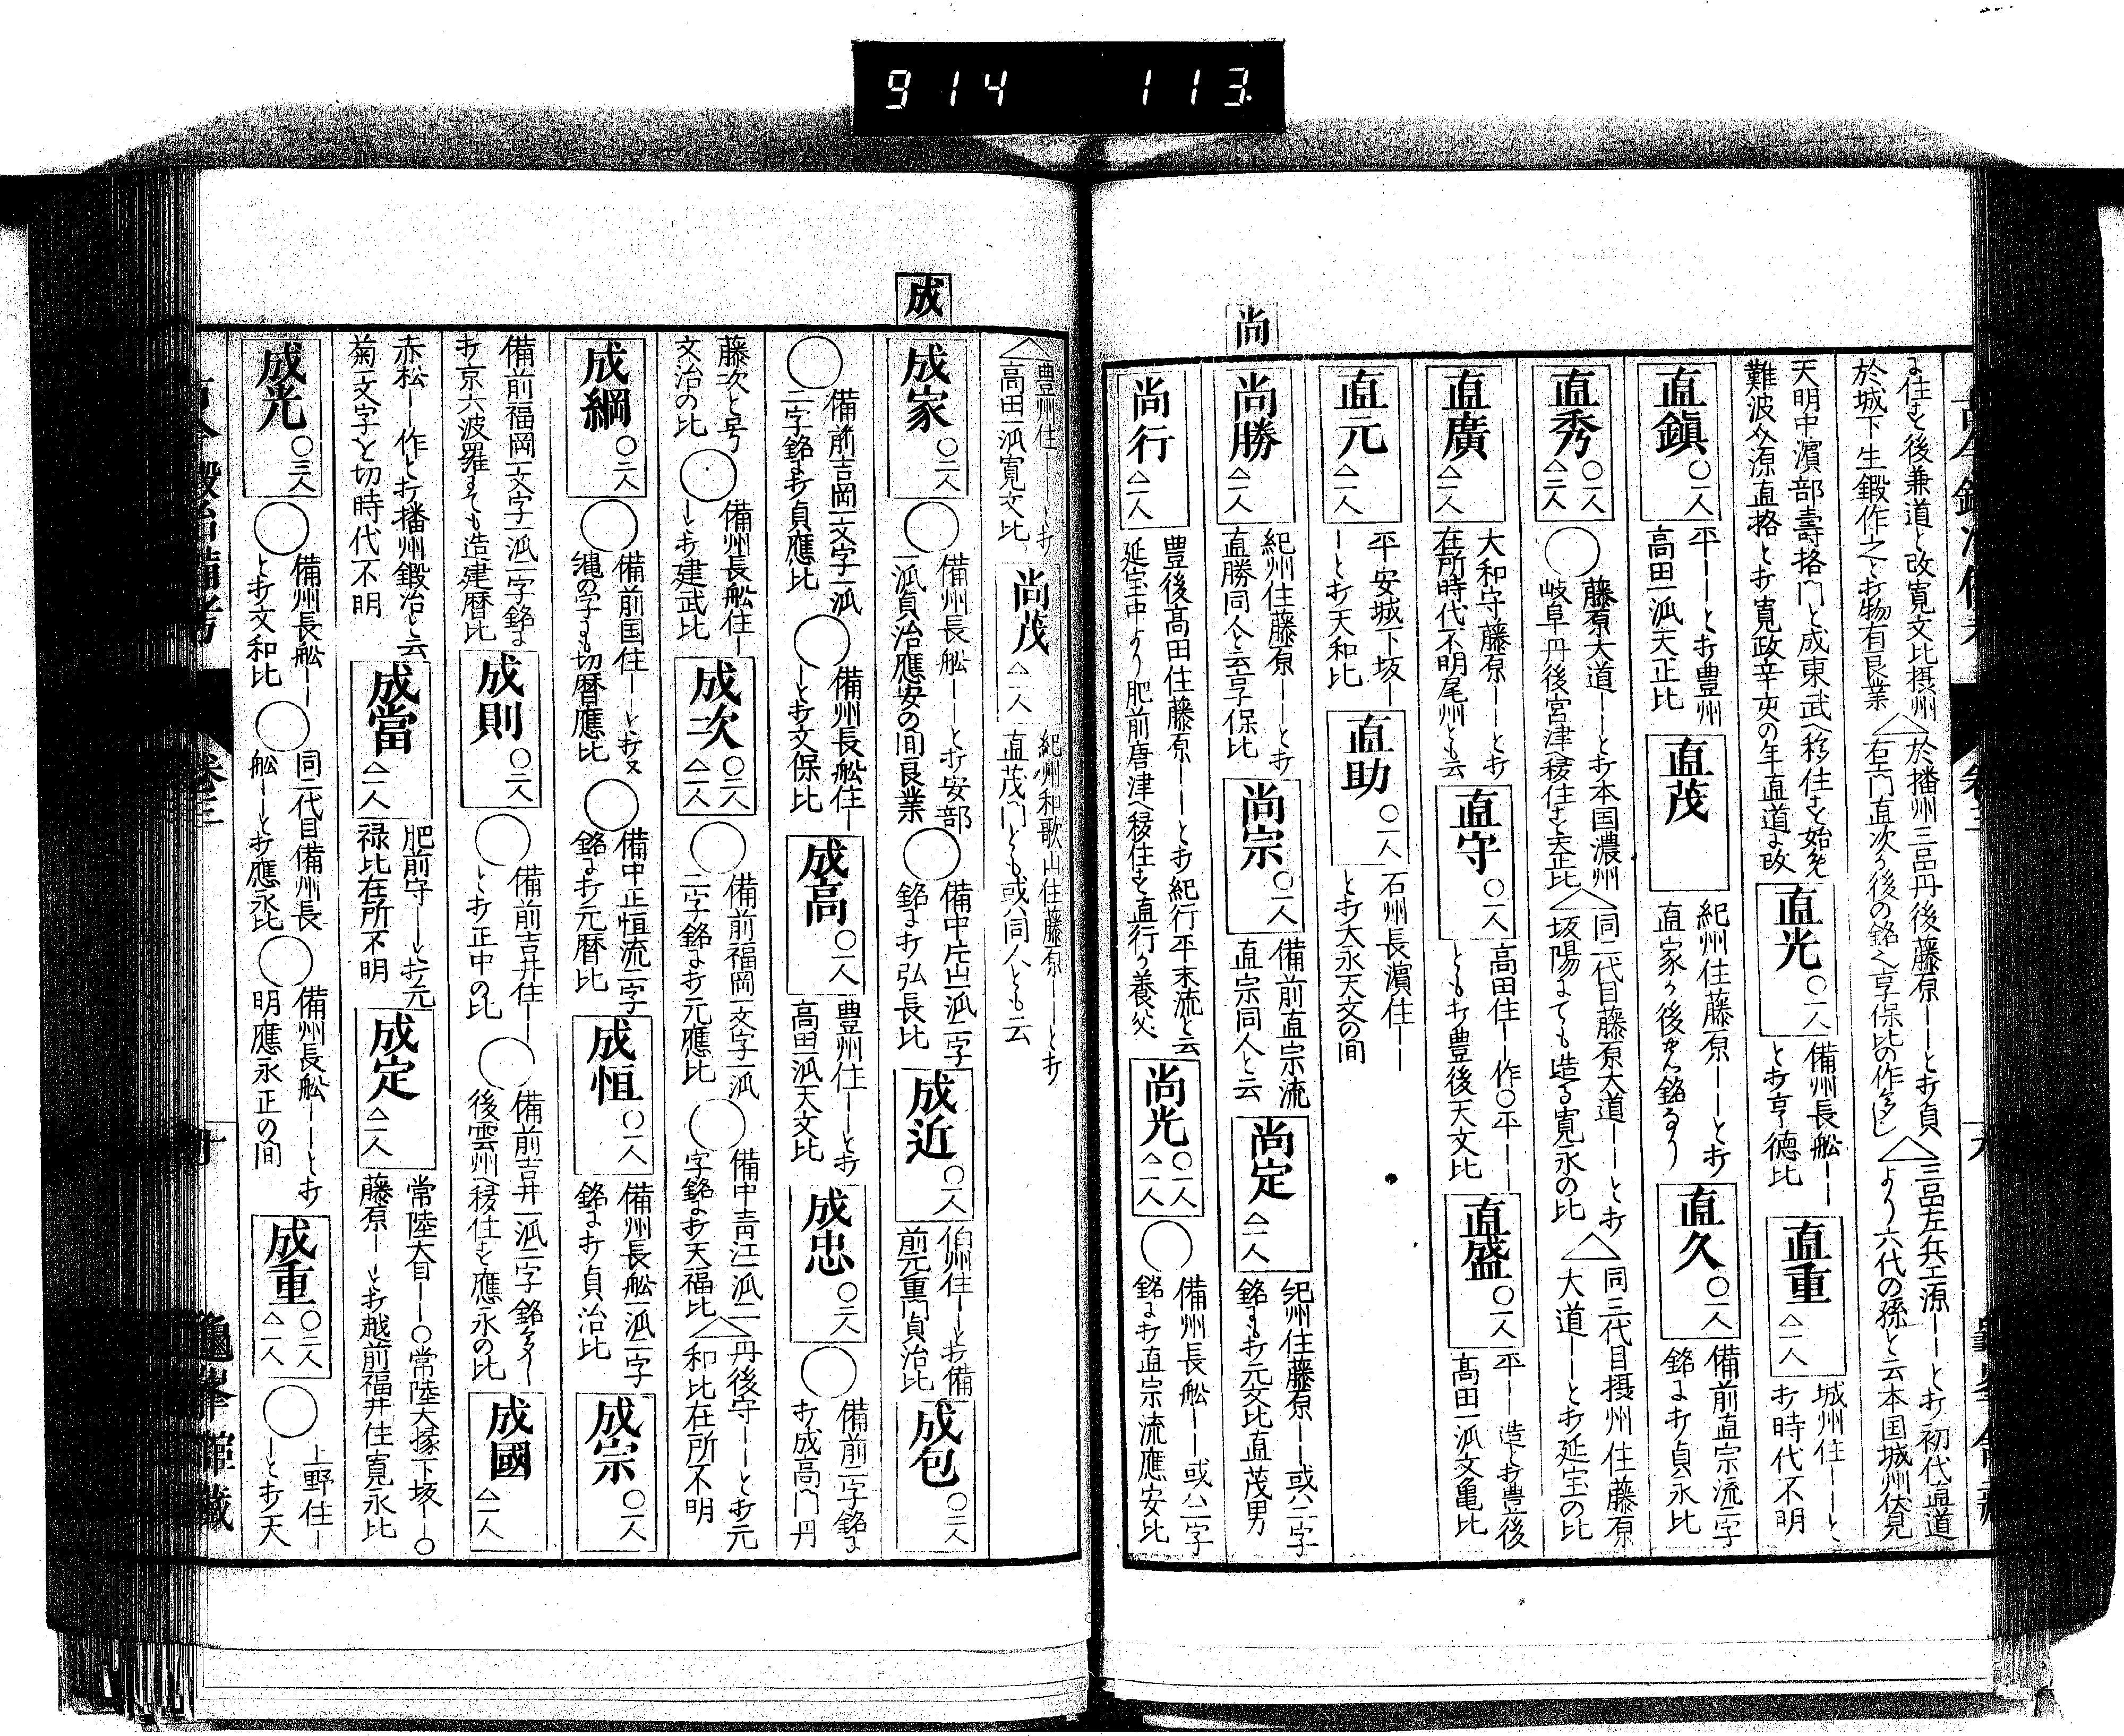 914 113
尚
に住す後兼道と改寛文比摂州
於城下生鍛作之とオ物有良業
△於播州三日月丹後藤原ーーとオ貞
右衛門直次後の銘
三品左兵エ源ーーとオ初代直道
より六代の孫と云本国城州伏見
天明中濱部壽格門と成東武へ移住す始
難波介源直格とオ寛政辛亥の年直道に改
直光 ○一人
備州長舩ーー
とオ享徳比
直重 △一人
城州住ーーと
オ時代不明
直鎮 ○一人
平ーーとオ豊州
高田一派天正比
直茂
紀州住藤原ーーとオ
直家
直久 ○一人
備前直宗流二字
銘にオ貞永比
直秀 ○一人 △二人
○藤原大道ーーとオ本国濃州
岐阜丹後宮津へ移住す天正比
△同二代目藤原大道ーーとオ
坂陽にても造る寛永の比
△同三代目摂州住藤原
大道ーーとオ延宝の比
直廣 △一人
大和守藤原ーーとオ
在所時代不明尾州とも云
直守 ○一人
高田住ーー作○平ーー
ともオ豊後天文比
直盛 ○一人
平ーー造とオ豊後
高田一派文亀比
直元 △一人
平安城下坂ー
ーとオ天和比
直助 ○一人
石州長濱住ーー
とオ大永天文の間
尚勝 △一人
紀州住藤原ーーとオ
直勝同人と云享保比
尚宗 ○一人
備前直宗流
直宗同人と云
尚定 △一人
紀州住藤原ーー或ハ二字
銘にもオ元文比直茂男
尚行 △一人
豊後髙田住藤原ーーとオ紀行平末流と云
延宝中より肥前唐津へ移住す直行の養父
尚光 ○一人 △一人
○備州長舩ーー或ハ二字
銘にオ直宗流應安比
成
△豊州住ーーーとオ
高田一派寛文比
尚茂 △一人
紀州和歌山住藤原ーーとオ
直茂門とも或ハ同人とも云
成家 ○二人
○備州長舩ーーとオ安部
一派貞治應安の間良業
○備中片山一派二字
銘にオ弘長比
成近 ○一人
伯州住ーーとオ備
前元重門貞治比
成包 ○二人
○備前吉岡一文字一派
二字銘にオ貞應比
○備州長舩住ー
ーとオ文保比
成高 ○一人
豊州住ーーとオ
高田一派天文比
成忠 ○二人
○備前二字銘に
オ成高門丹
藤次と号
文治の比
○備州長舩住ー
ーとオ建武比
成次 ○二人 △一人
○備前福岡一文字一派
二字銘にオ元應比
○備中青江一派二
字銘にオ天福比
△丹後守ーーとオ元
和比在所不明
成綱 ○二人
○備前国住ーーとオ又
縄の字にも切暦應比
○備中正恒流二字
銘にオ元暦比
成恒 ○一人
備州長舩一派二字
銘にオ貞治比
成宗 ○二人
備前福岡一文字一派二字銘に
オ京六波羅にても造建暦比
成則 ○二人
○備前吉井住ーー
とオ正中の比
○備前吉井一派二字銘
後雲州へ移住す應永の比
成國 △一人
赤松ーー作とオ播州鍛冶と云
菊一文字と切時代不明
成當 △一人
肥前守ーーとオ元
禄比在所不明
成定 △一人
常陸大目ーー○常陸大掾下坂ー○
藤原ーーとオ越前福井住寛永比
成光 ○三人
○備州長舩ーー
とオ文和比
○同二代目備州長
舩ーーとオ應永比
○備州長舩ーーとオ
明應永正の間
成重 ○二人 △一人
○上野住ー
ーとオ天
卷三
龜峯館藏